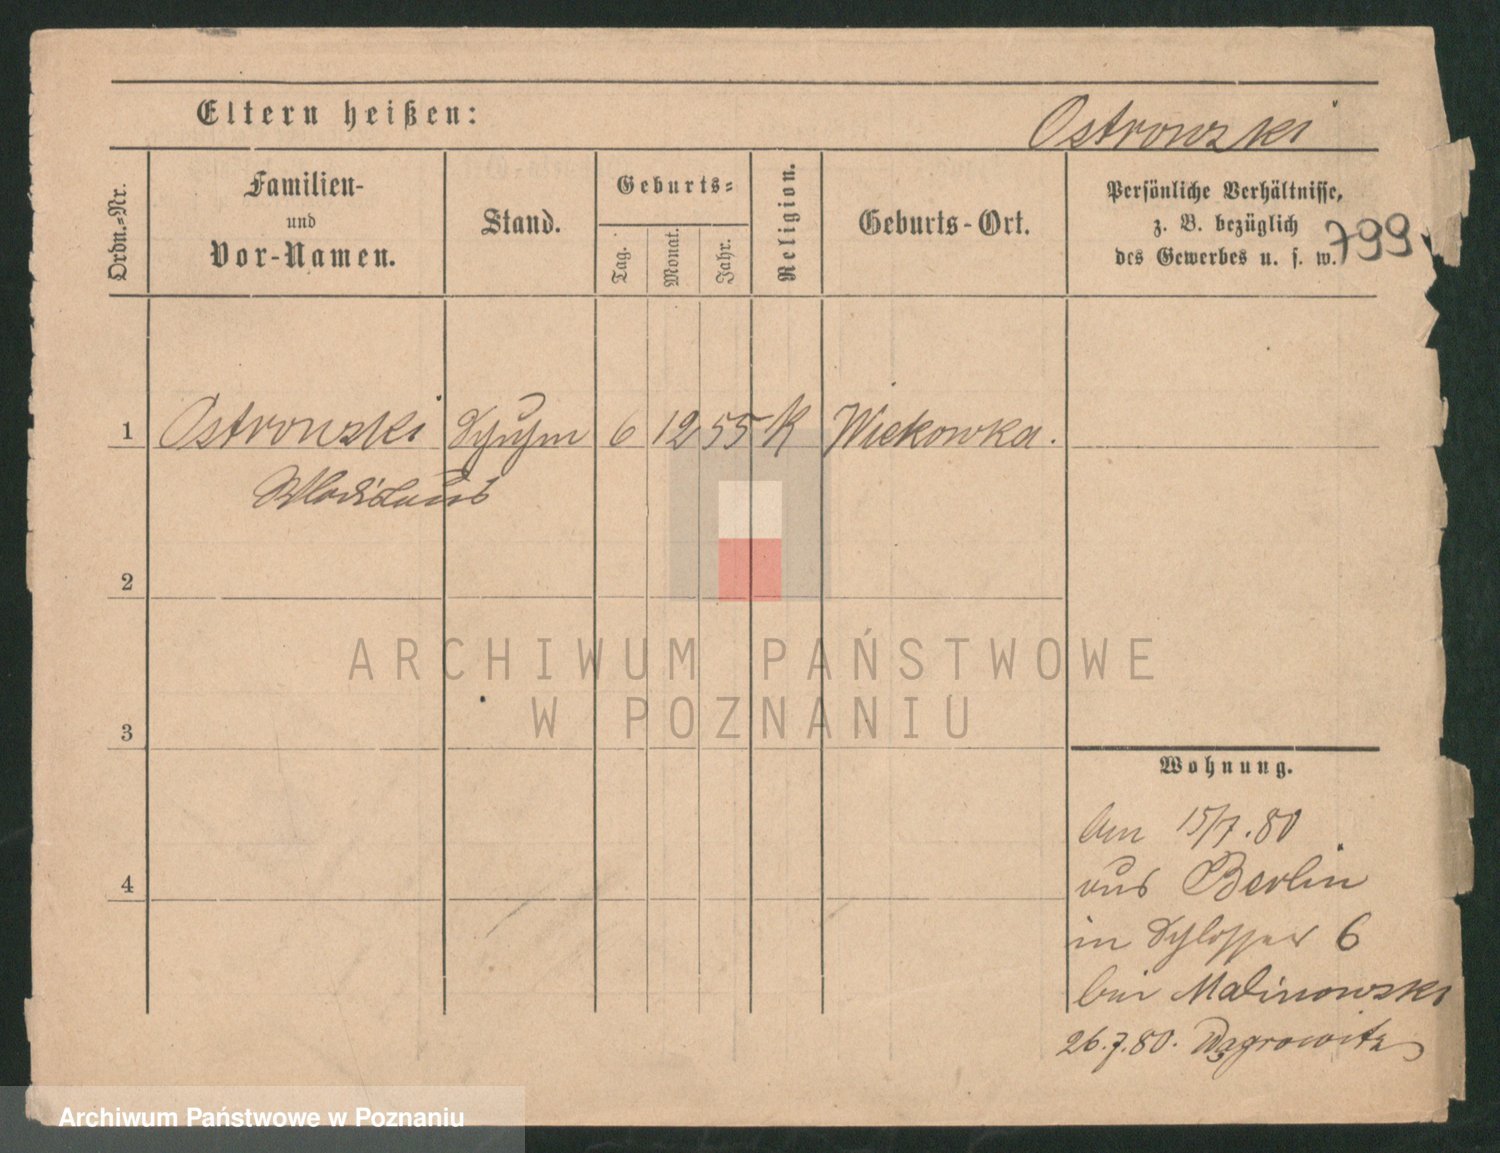 Eltern heißen:
Ostrowski
Ordn.-Nr.
Familien-
und
Vor-Namen.
Stand.
Geburts-
Tag.
Monat.
Jahr.
Religion.
Geburts-Ort.
Persönliche Verhältnisse,
z. B. bezüglich
des Gewerbes u. s. w.
799
1 Ostrowski 6 12 55 K Wiekowka.
Wladislaus
2
3
4
ARCHIWUM PAŃSTWOWE
W POZNANIU
Wohnung.
Am 15/7.80
aus Berlin
in Schlosser 6
bei Malinowski
26.7.80.
Archiwum Państwowe w Poznaniu